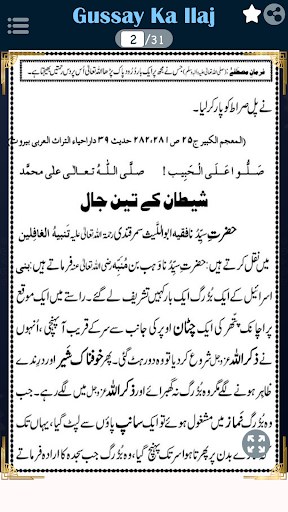 Gussay Ka Ilaj
2 /31
فرمانِ مصطفےٰ (صلی اللہ تعالیٰ علیہ واٰلہ وسلم) جس نے مجھ پر ایک بار دُرُود پاک پڑھا اللہ تعالیٰ اُس پر دس رحمتیں بھیجتا ہے۔
نے پل صراط کو پار کر لیا۔
(المعجم الکبیر ج۲۵ ص ۲۸۲،۲۸۱ حدیث ۳۹ داراحیاء التراث العربی بیروت)
صَلُّوا عَلَی الْحَبِیب! صَلَّی اللّٰہُ تعالٰی علٰی محمَّد
شیطان کے تین جال
حضرتِ سیِّدُنا فقیہ ابو اللَّیث سمرقندی رحمۃ اللہ تعالیٰ علیہ تَنبِیہُ الْغافِلین
میں نقل کرتے ہیں: حضرتِ سیِّدُنا وَہب بن مُنَبِّہ رضی اللہ تعالیٰ عنہ فرماتے ہیں: بنی
اسرائیل کے ایک بُزُرگ ایک بار کہیں تشریف لے گئے۔ راستے میں ایک موقع
پر اچانک پتّھر کی ایک چٹان اوپر کی جانب سے سر کے قریب آ پہنچی، اُنہوں
نے ذکرُ اللہ شروع کر دیا تو وہ دور ہٹ گئی۔ پھر خوفناک شیر اور درندے
ظاہر ہونے لگے مگر وہ بُزُرگ نہ گھبرائے اور ذکرُ اللہ عزوجل میں لگے رہے۔ جب
وہ بُزُرگ نَماز میں مشغول ہوئے تو ایک سانپ پاؤں سے لپٹ گیا، یہاں تک
بدن پر پھرتا ہوا سر تک پہنچ گیا، وہ بُزُرگ جب سجدہ کا ارادہ فرماتے